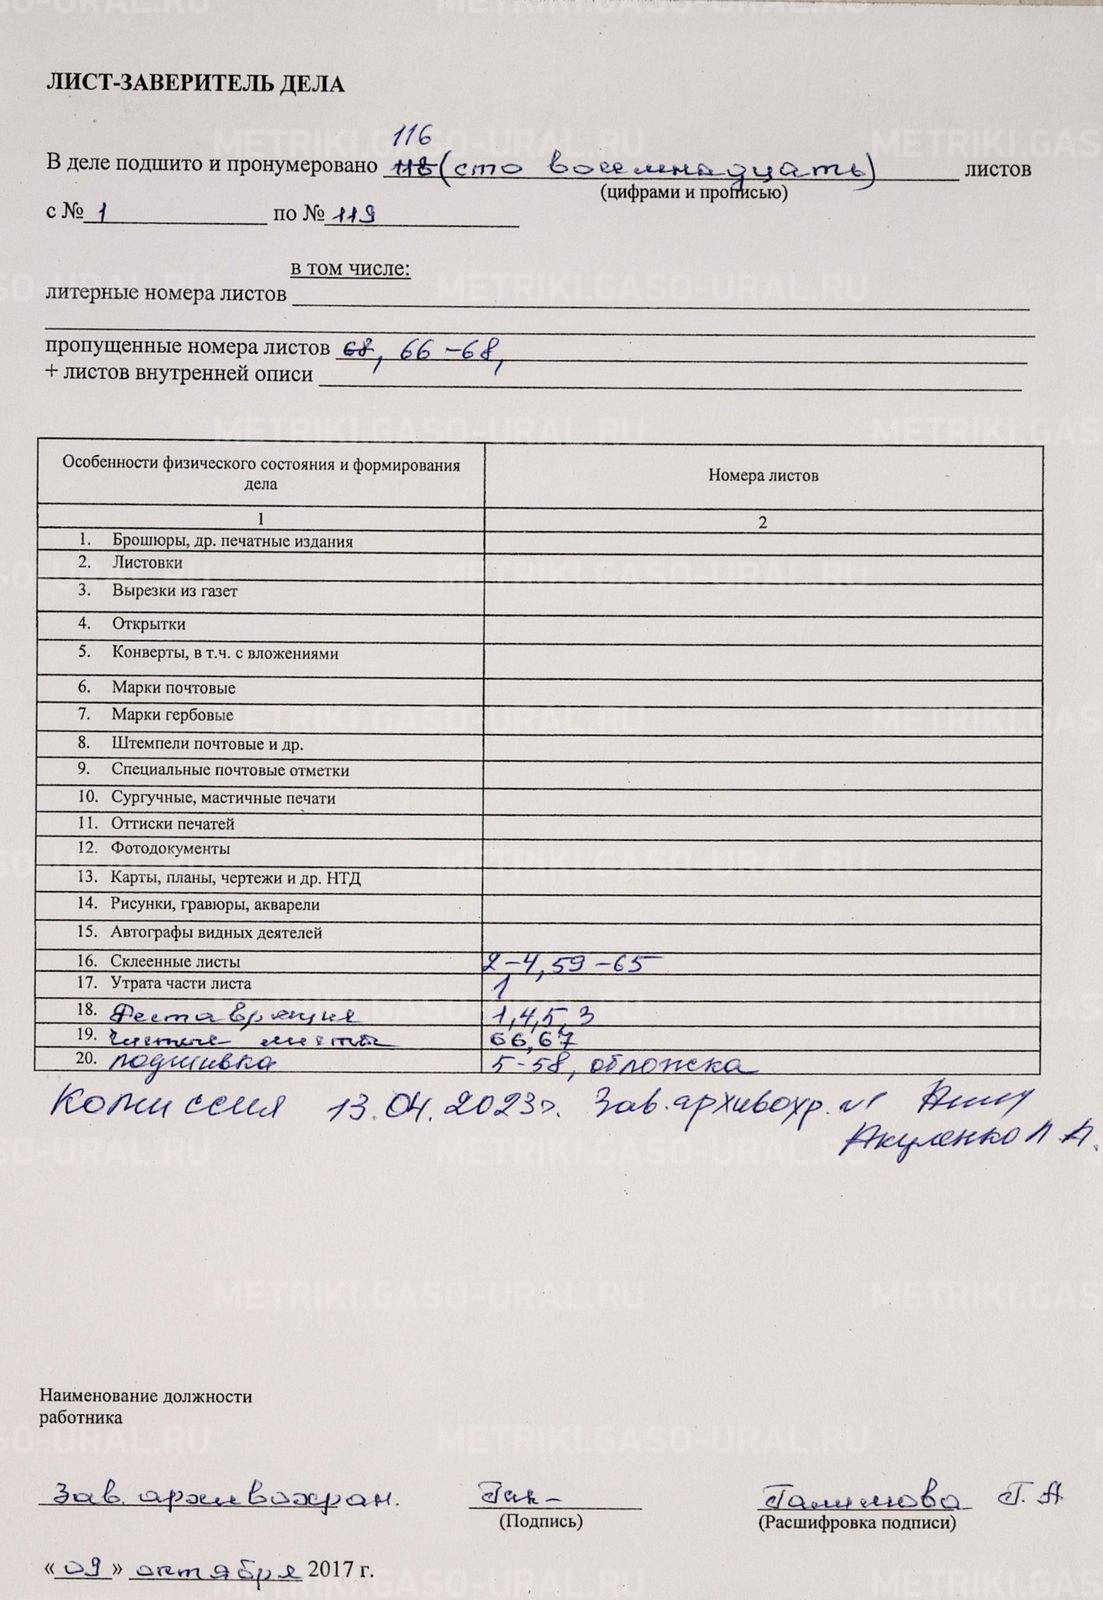 ЛИСТ-ЗАВЕРИТЕЛЬ ДЕЛА
116
В деле подшито и пронумеровано 118 (сто восемнадцать) листов
(цифрами и прописью)
с № 1 по № 119
в том числе:
литерные номера листов
пропущенные номера листов 68, 66-68,
+ листов внутренней описи
Особенности физического состояния и формирования дела Номера листов
1 2
1. Брошюры, др. печатные издания
2. Листовки
3. Вырезки из газет
4. Открытки
5. Конверты, в т.ч. с вложениями
6. Марки почтовые
7. Марки гербовые
8. Штемпели почтовые и др.
9. Специальные почтовые отметки
10. Сургучные, мастичные печати
11. Оттиски печатей
12. Фотодокументы
13. Карты, планы, чертежи и др. НТД
14. Рисунки, гравюры, акварели
15. Автографы видных деятелей
16. Склеенные листы 2-4, 59-65
17. Утрата части листа 1
18. Реставрация 1,4,5,3
19. чистые листы 66,67
20. подшивка 5-58, обложка
Комиссия 13.04.2023г. Зав. архивохр. №1
Акуленко Л А.
Наименование должности
работника
Зав. архивохран. Галимова Г. А
(Подпись) (Расшифровка подписи)
«09» октября 2017 г.
METRIKI.GASO-URAL.RU